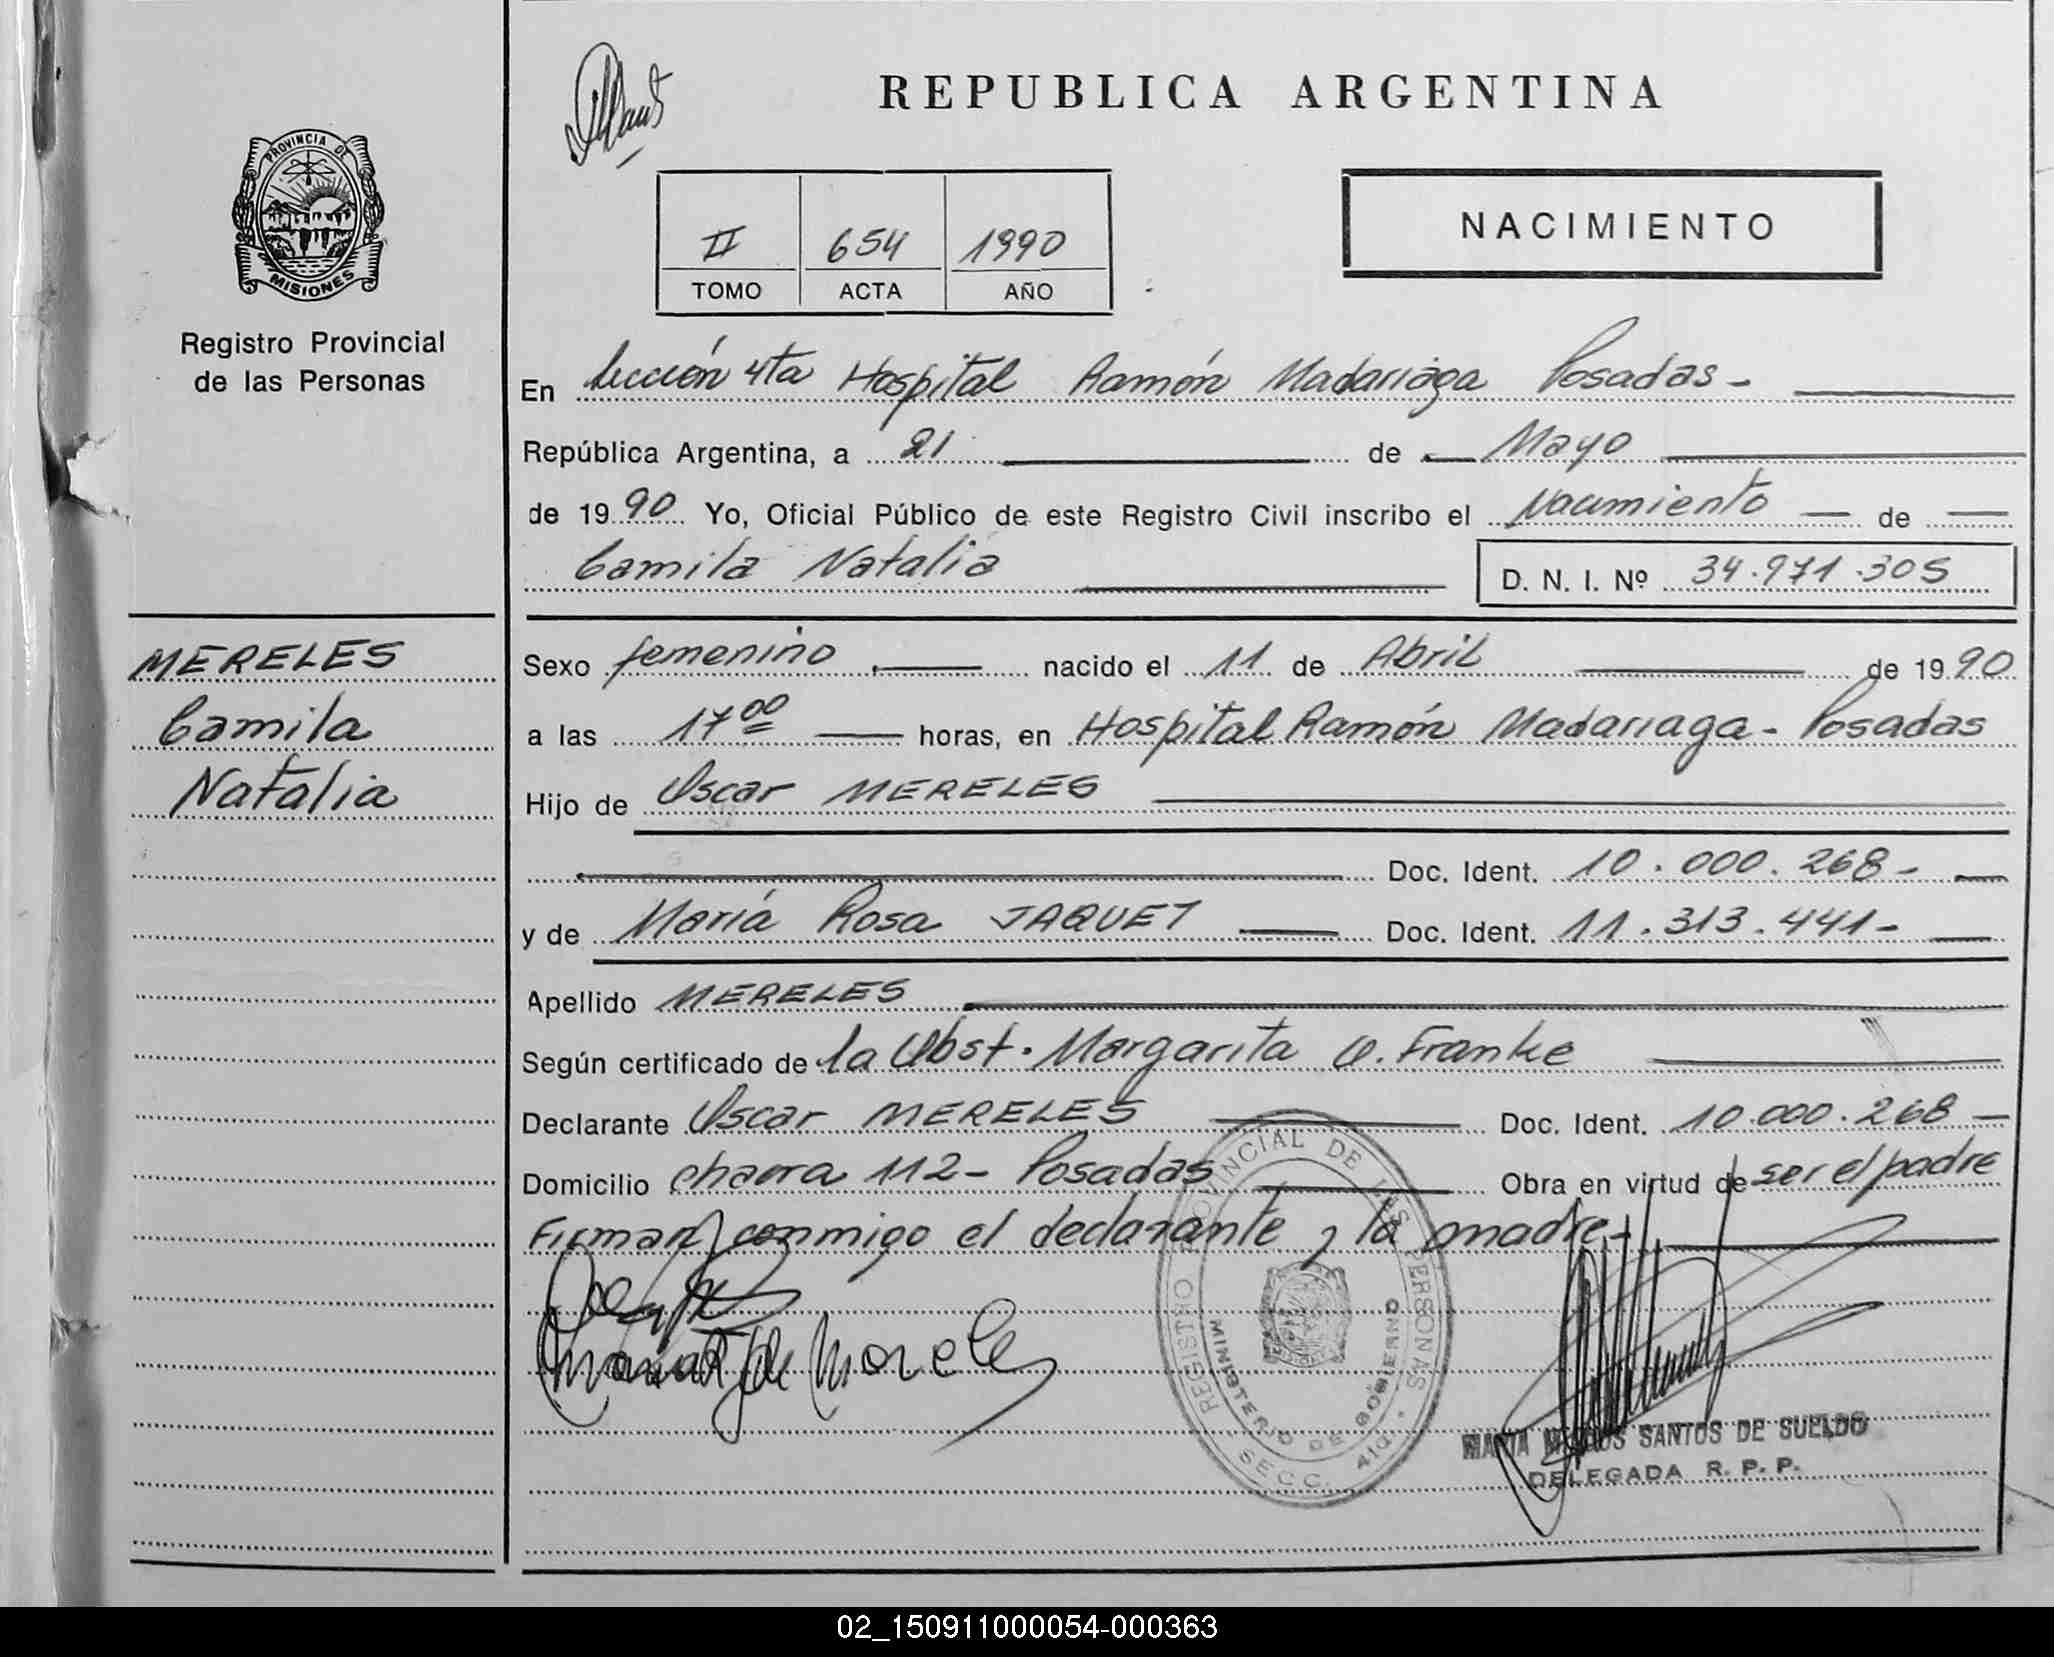 REPUBLICA ARGENTINA
PROVINCIA DE
MISIONES
Registro Provincial
de las Personas
II 654 1990
TOMO ACTA AÑO
NACIMIENTO
En Sección 4ta Hospital Ramón Madariaga Posadas-
República Argentina, a 21 de Mayo
de 1990 Yo, Oficial Público de este Registro Civil inscribo el Nacimiento de
Camila Natalia D. N. I. Nº 34.971.305
MERELES
Camila
Natalia
Sexo femenino nacido el 11 de Abril de 1990
a las 17 00 horas, en Hospital Ramón Madariaga - Posadas
Hijo de Oscar MERELES
Doc. Ident. 10.000.268-
y de María Rosa JAQUET Doc. Ident. 11.313.441-
Apellido MERELES
Según certificado de la Obst. Margarita O. Franke
Declarante Oscar MERELES Doc. Ident. 10.000.268
Domicilio chacra 112- Posadas Obra en virtud de ser el padre
Firman conmigo el declarante y la madre-
REGISTRO PROVINCIAL DE LAS PERSONAS
MINISTERIO DE GOBIERNO
SECC. 4ta.
de Mereles
SANTOS DE SUELDO
DELEGADA R. P. P.
02_150911000054-000363